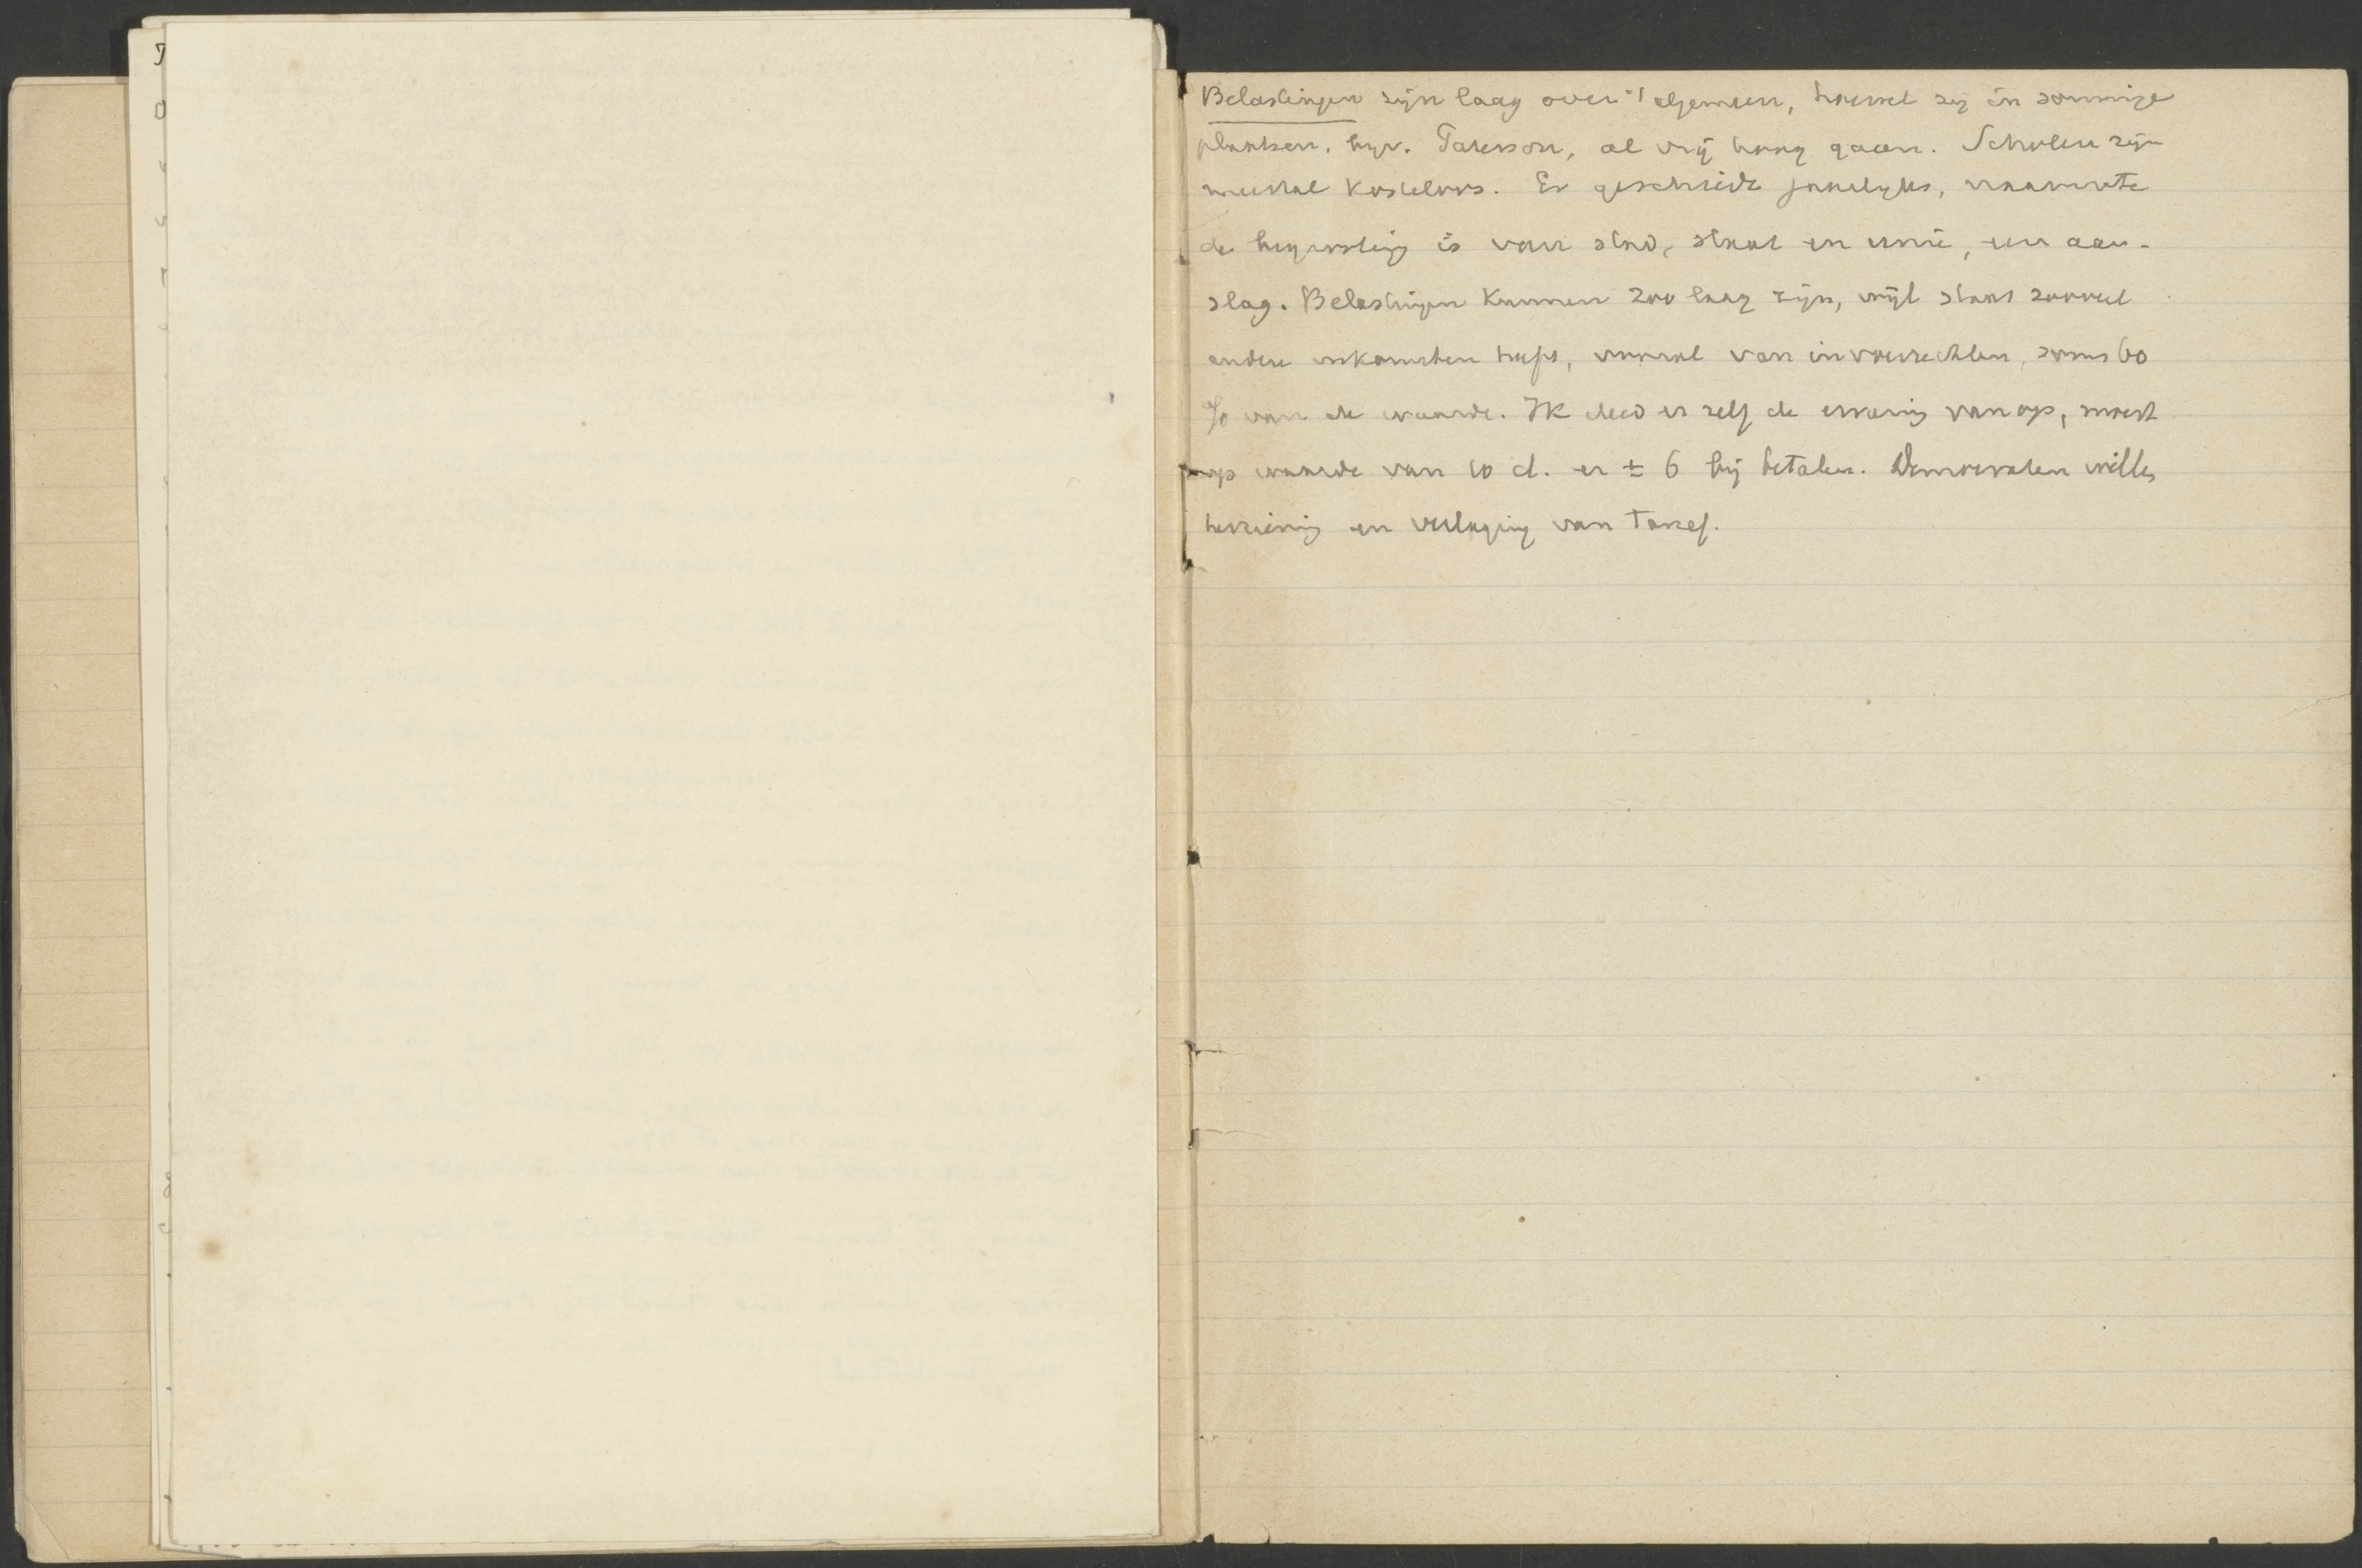 Belastingen zijn laag over 't algemeen, hoewel zij in sommige
plaatsen, bijv. Paterson, al vrij hoog gaan. Scholen zijn
meestal kosteloos. Er geschiedt jaarlijks, naarmate
de begrooting is van stad, staat en unie, een aan-
slag. Belastingen kunnen zoo laag zijn, wijl staat zooveel
andere inkomsten heeft, vooral van invoerrechten, soms 60
% van de waarde. Ik deed er zelf de ervaring van op, moest
op waarde van 10 d. er ± 6 bij betalen. Democraten willen
herziening en verlaging van tarief.